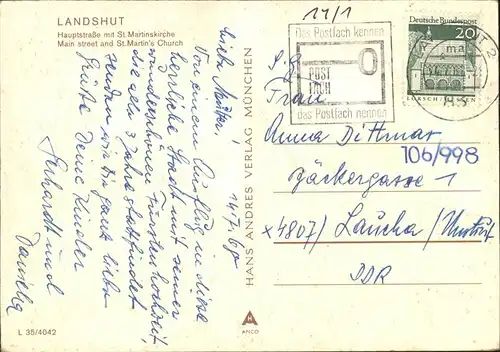 LANDSHUT
Hauptstraße mit St. Martinskirche
Main street and St. Martin's Church
14.7.68
Liebe Mutter!
Von einem Ausflug in diese
herrliche Stadt mit seiner
wunderschönen Fürstenhochzeit,
die alle 3 Jahre stattfindet
senden wir Dir ganz liebe
Grüße Deine Kinder
Gerhardt und
L 35/4042
HANS ANDRES VERLAG MÜNCHEN
ANCO
14/1
Das Postfach kennen
POST
FACH
das Postfach nennen
Deutsche Bundespost
20
LORSCH/HESSEN
Frau
Anna Dittmar
106/998
Bäckergasse 1
x4807/ Laucha /Unstrut
DDR